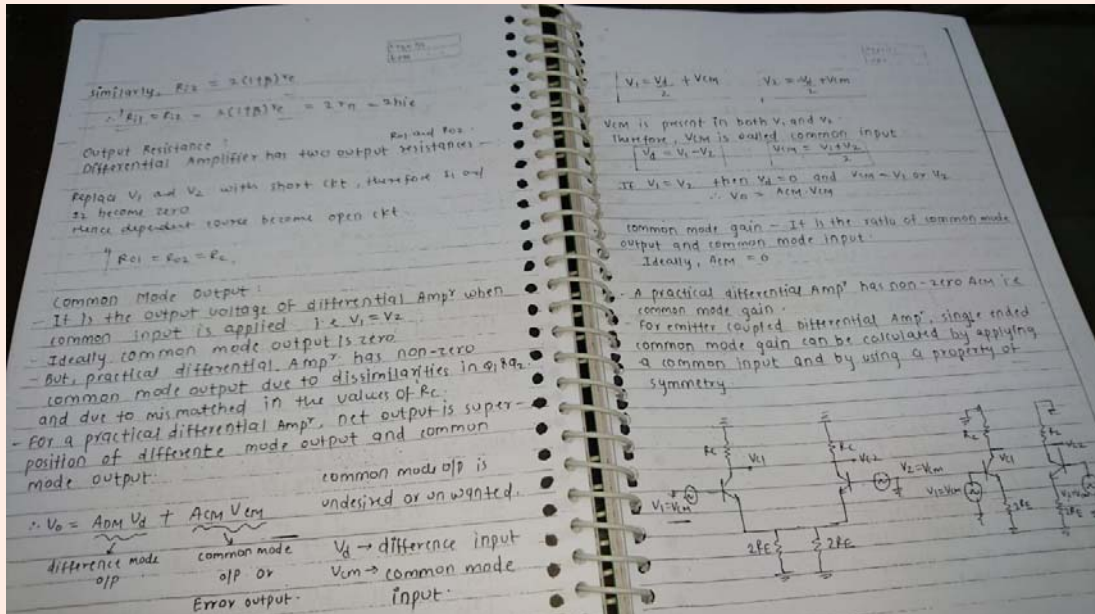 Similarly, Ri2 = 2(1+β)re
∴ Ri1 = Ri2 = 2(1+β)re = 2rπ = 2hie
Output Resistance :
Differential Amplifier has two output resistances – R01 and R02.
Replace V1 and V2 with short ckt, therefore i1 and
i2 become zero
Hence dependent source become open ckt.
R01 = R02 = Rc.
Common Mode Output :
- It is the output voltage of differential Ampr when
common input is applied i.e V1 = V2
- Ideally common mode output is zero
- But, practical differential Ampr. has non-zero
common mode output due to dissimilarities in Q1 & Q2.
and due to mismatched in the values of Rc.
- For a practical differential Ampr, net output is super-
position of difference mode output and common
mode output.
common mode o/p is
undesired or unwanted.
∴ V0 = ADM Vd + ACM Vcm
difference mode
o/p
common mode
o/p or
Error output.
Vd → difference input
Vcm → common mode
input.
V1 = Vd/2 + VCM V2 = -Vd/2 + VCM
VCM is present in both V1 and V2.
Therefore, VCM is called common input
Vd = V1 - V2 VCM = V1+V2/2
If V1 = V2 then Vd = 0 and VCM = V1 or V2
∴ V0 = ACM VCM
common mode gain – It is the ratio of common mode
output and common mode input.
Ideally, ACM = 0
- A practical differential Ampr has non-zero ACM i.e
common mode gain.
- For emitter coupled Differential Ampr, single ended
common mode gain can be calculated by applying
a common input and by using a property of
symmetry.
Rc VC1 Rc VC2
V1=VCM V2=VCM
2RE 2RE
Rc VC1 Rc VC2
V1=VCM V2=VCM
2RE 2RE